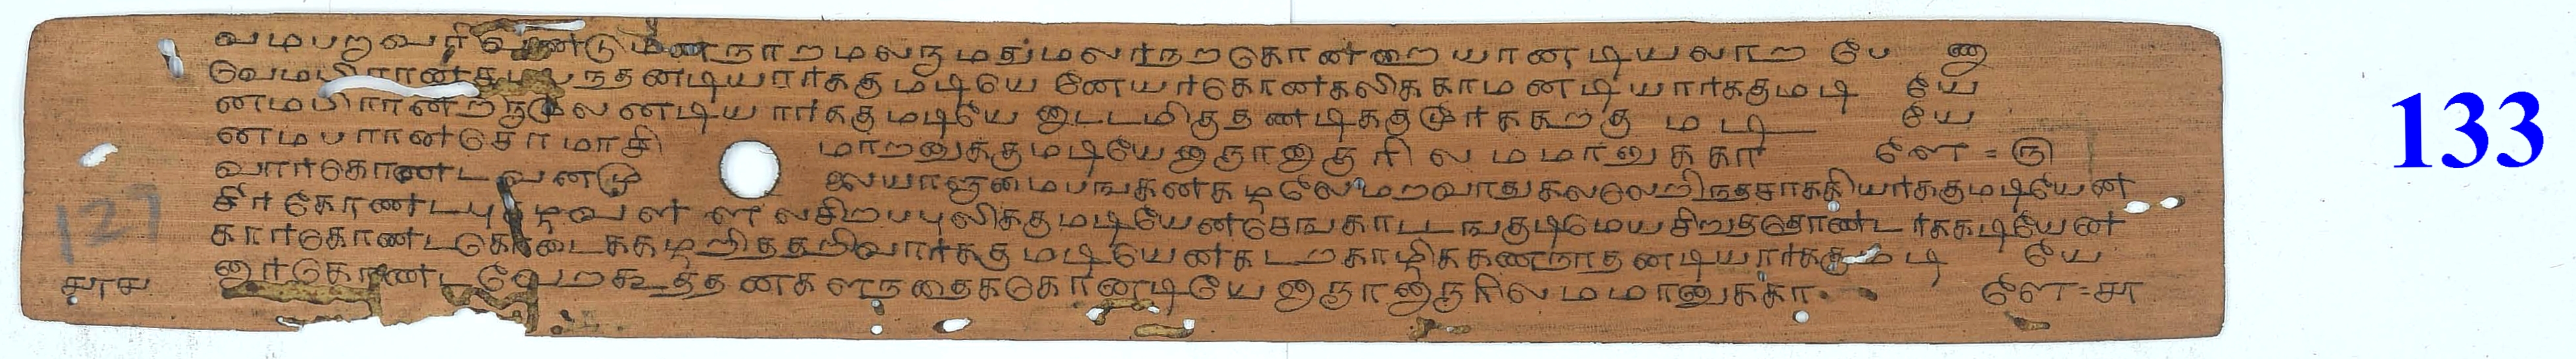 வமபறவரிவண்டு மணநாறமலருமதுமலர்நறகொன்றையானடியலாற பே ணு
வெமபிரான்சமபநதனடியார்ககுமடியே னேயர்கொன்கலிககாமனடியார்ககுமடி யே
னமபிரான்றிருமூலனடியார்ககுமடியே னுடடமிகுதண்டிககுமூர்கககற்கு மடி யே
னமபரான்சொமாசி மாறனுக்குமடியேனுரூரனுரூரிலமமானுககா ளே = ௫
வார்கொண்டவனமு லையாளுமைபஙகன்கழலெமறவாதுகலலெறிநதசாககியர்க்குமடியேன்
சீர்கொண்டபுகழ்வள்ளலசிறபபுலிக்குமடியேன்செஙகாடடஙகுடிமேயசிறுதொண்டர்ககடியேன்
கார்கொண்டகொடைககழறிததறிவார்ககுமடியேன்கடறகாழிககணநாதனடியார்க்குமடி யே
னுர்கொண்டவேறகூத்தன்களநதைககொனடியேனுரூரனுரூரிலமமானுககா ளே = ௬
127
133